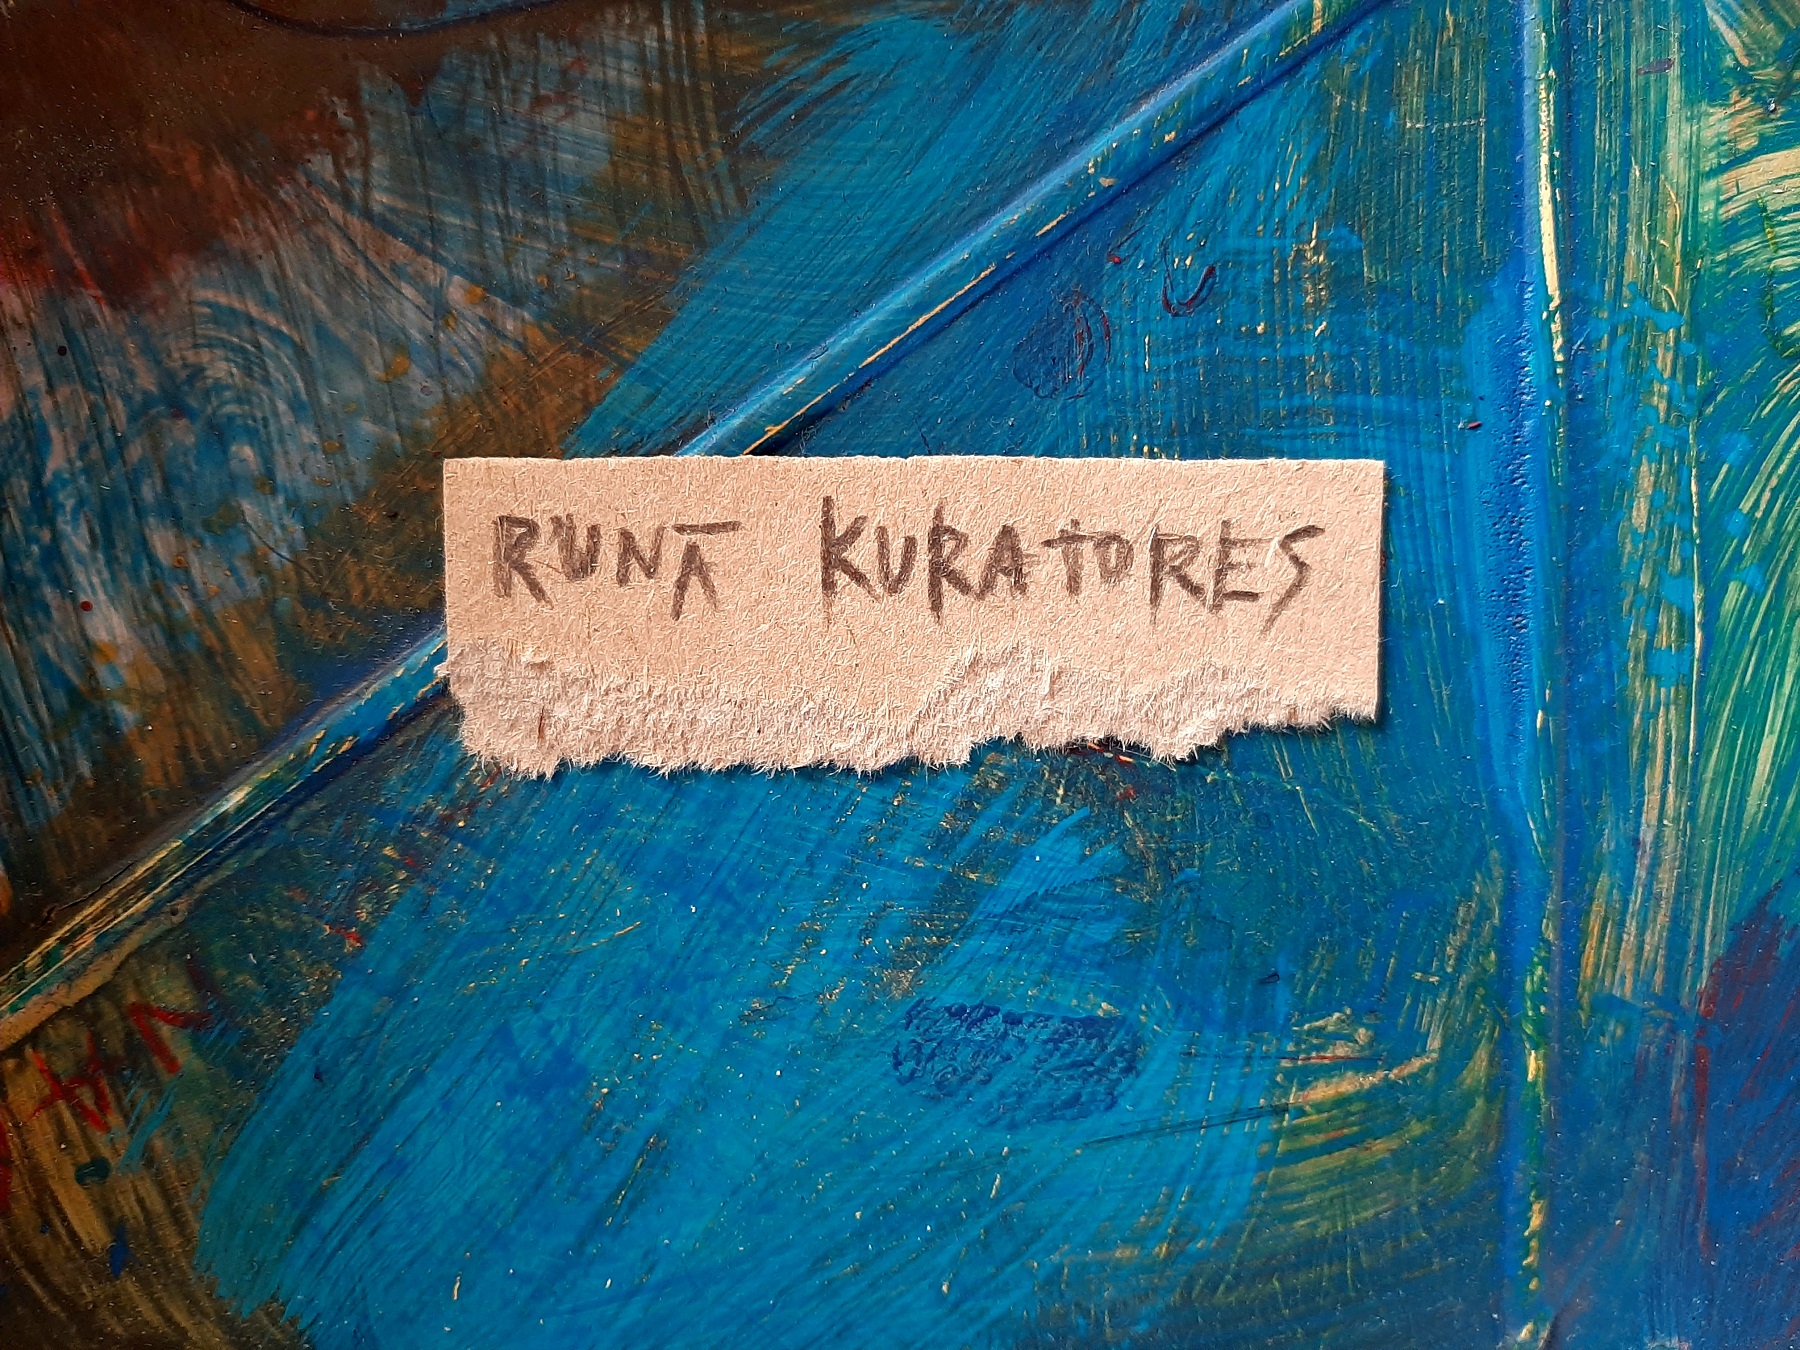 RUNĀ KURATORES